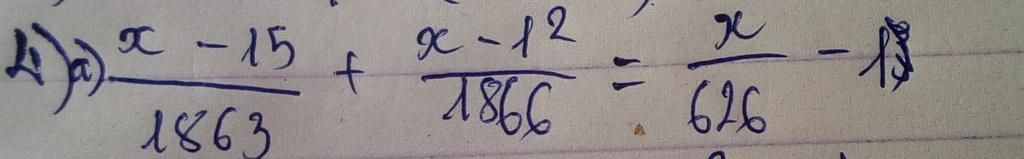 4) a) x - 15 / 1863 + x - 12 / 1866 = x / 626 - 1